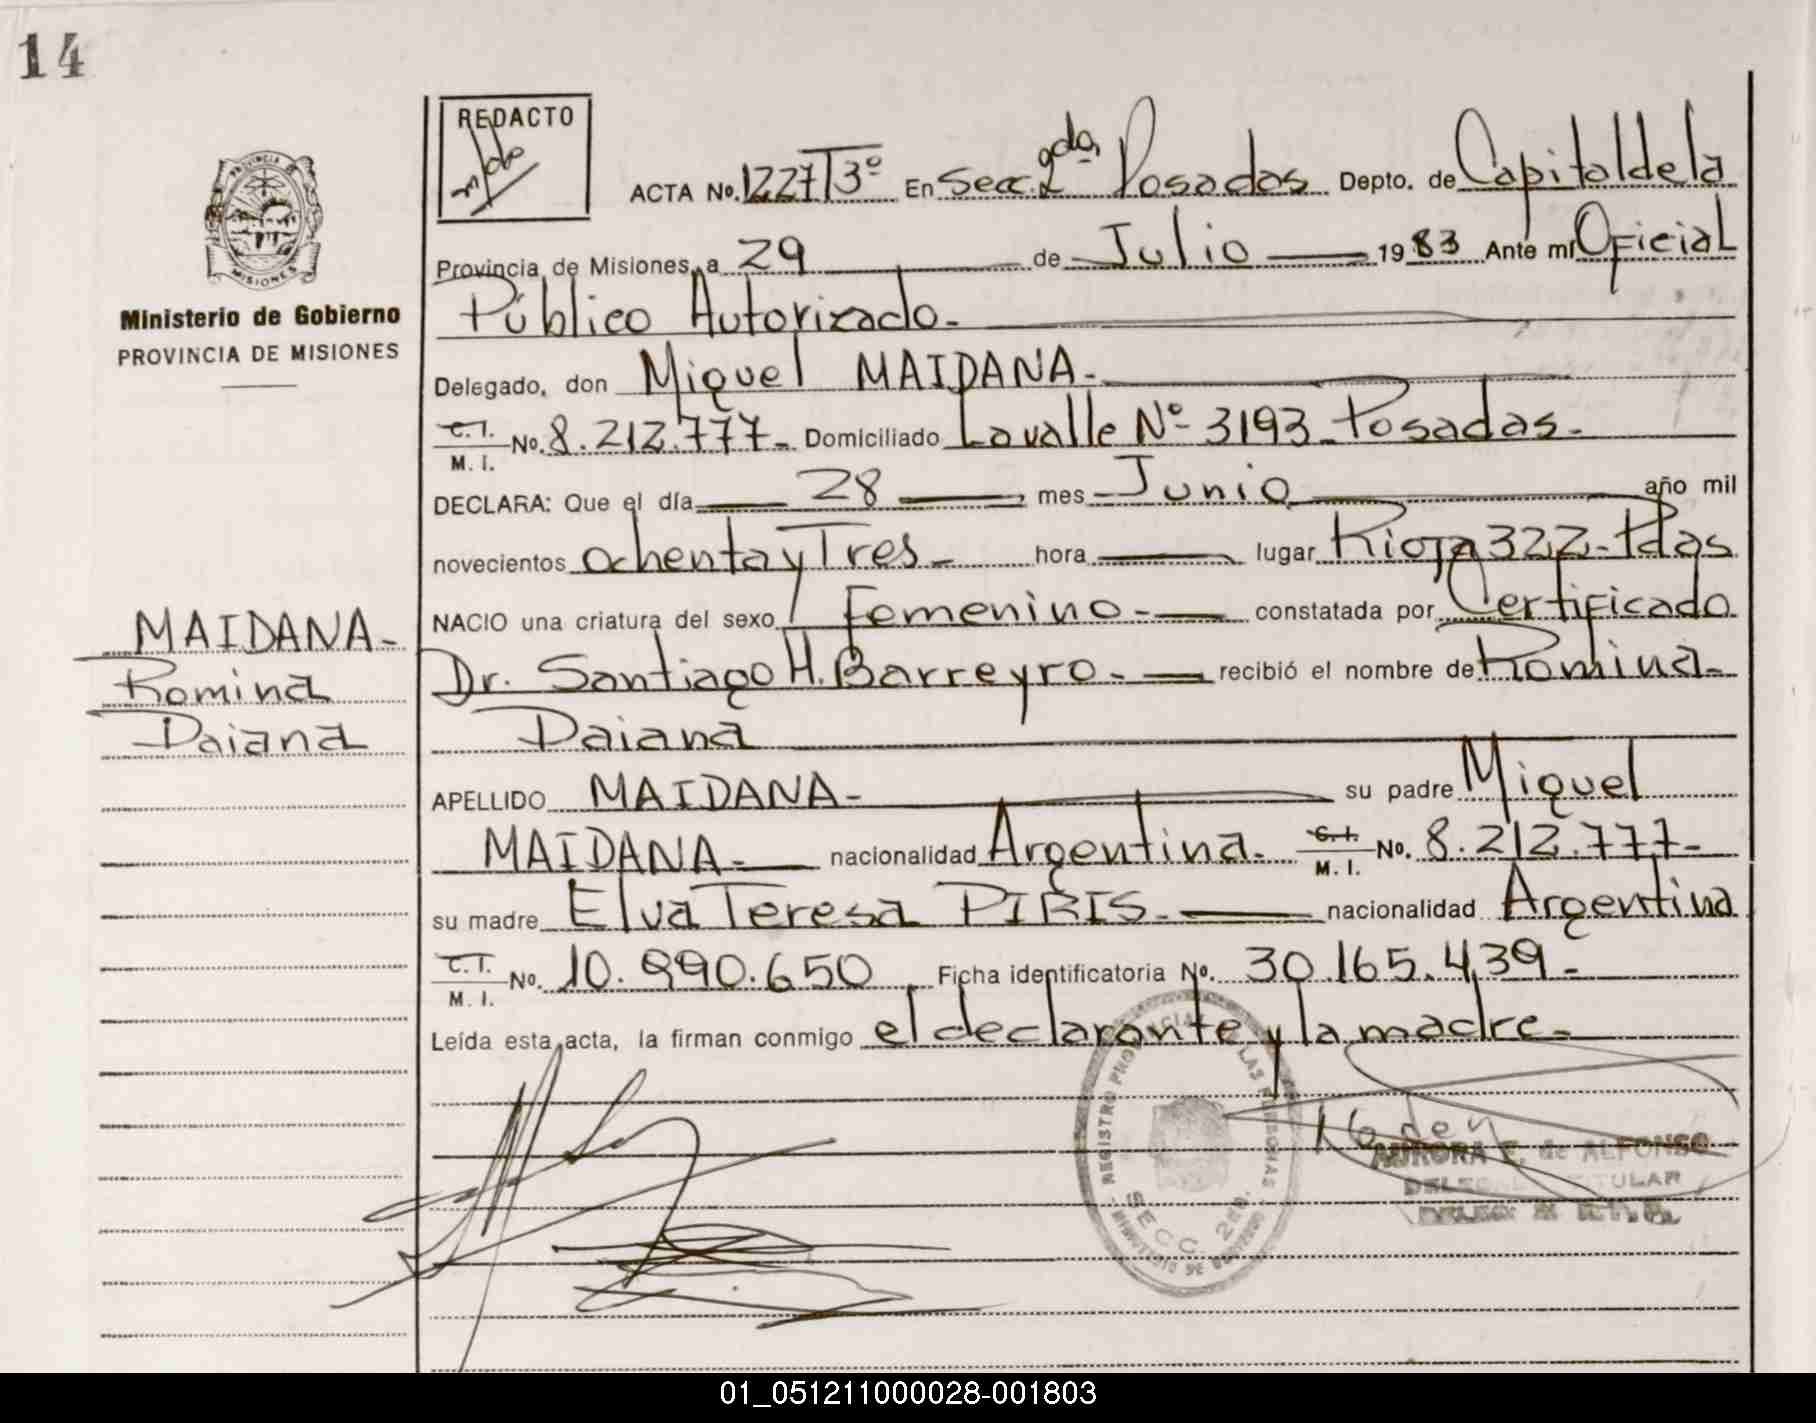 14
REDACTO
PROVINCIA DE
MISIONES
Ministerio de Gobierno
PROVINCIA DE MISIONES
ACTA No. 1227 T 3º En Secc. 2da Posadas Depto. de Capital de la
Provincia de Misiones, a 29 de Julio 1983 Ante mí Oficial
Público Autorizado.
Delegado, don Miguel MAIDANA.
C. I. M. I. No. 8.212.777 Domiciliado Lavalle Nº 3193 Posadas.
DECLARA: Que el día 28 mes Junio año mil
novecientos ochenta y Tres hora lugar Rioja 322 - Pdas
NACIO una criatura del sexo Femenino. constatada por Certificado
Dr. Santiago H. Barreyro. recibió el nombre de Romina
Daiana
MAIDANA
Romina
Daiana
APELLIDO MAIDANA su padre Miguel
MAIDANA nacionalidad Argentina. C. I. M. I. No. 8.212.777
su madre Elva Teresa PIRIS. nacionalidad Argentina
C. I. M. I. No. 10.990.650 Ficha identificatoria No. 30.165.439
Leída esta acta, la firman conmigo el declarante y la madre.
REGISTRO PROVINCIAL DE LAS PERSONAS
SECC. 2da.
AURORA E. de ALFONSO
TITULAR
01_051211000028-001803